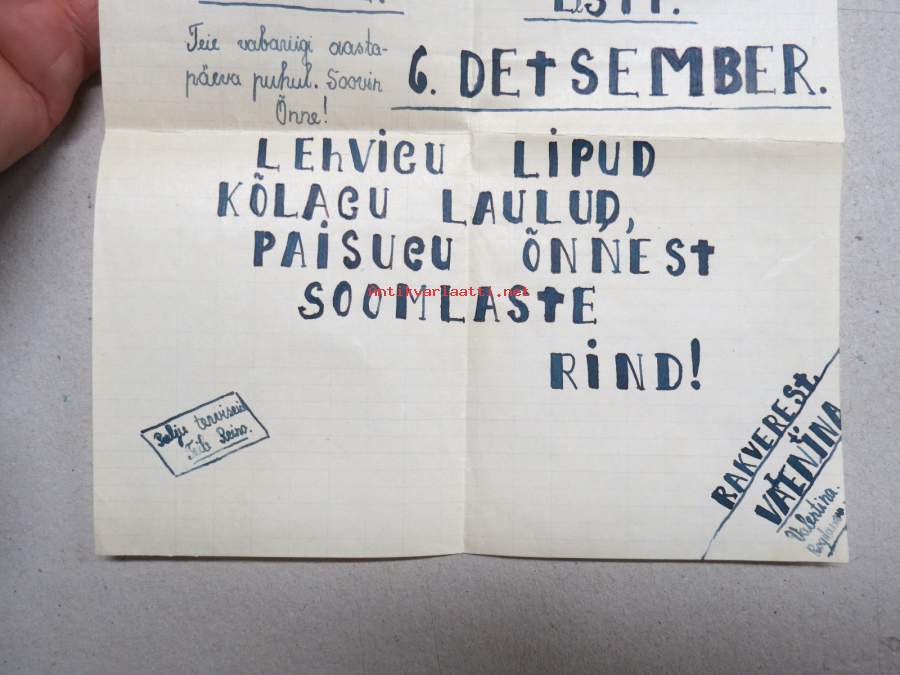 EESTI.
Teie vabariigi aasta-
päeva puhul. Soovin
Õnne!
6. DETSEMBER.
LEHVIGU LIPUD
KÕLAGU LAULUD,
PAISUGU ÕNNEST
SOOMLASTE
RIND!
antikvariaatti.net
Palju terviseid
Teile Reino.
RAKVEREST
VATENINA
Valentina.